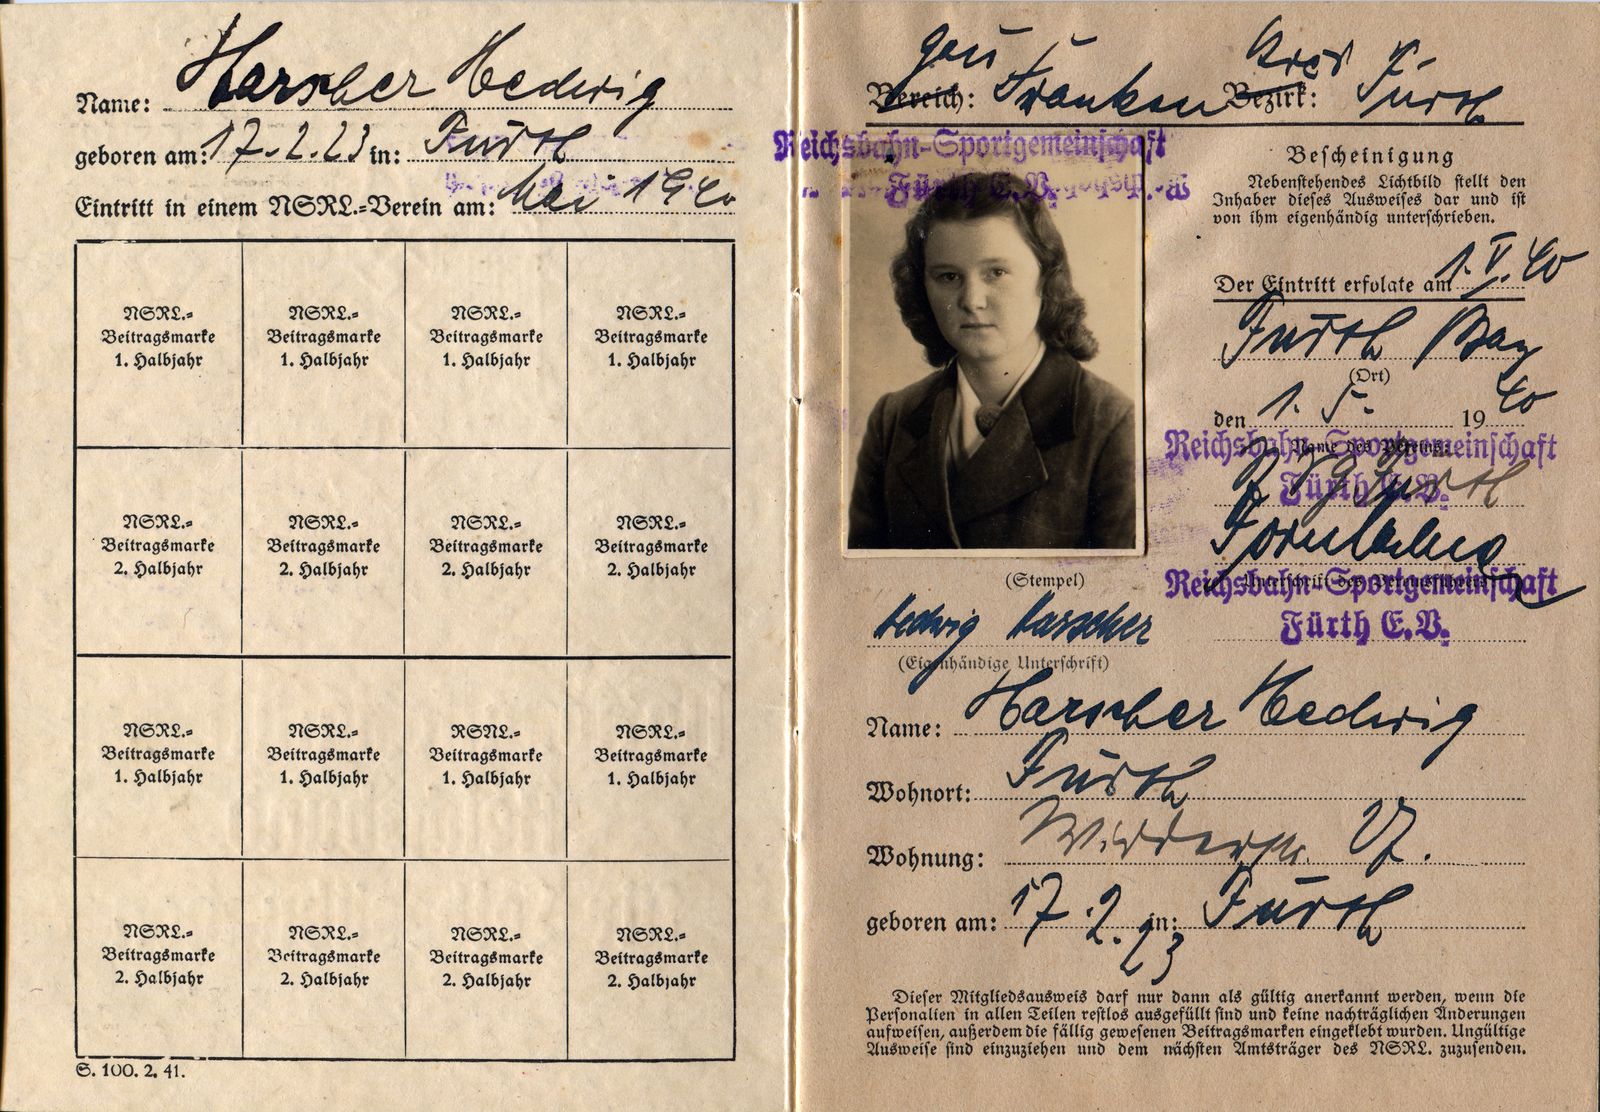 Name: Harscher Hedwig
geboren am: 17.2.23 in: Fürth
Eintritt in einem NSRL.=Verein am: Mai 1940
NSRL.= NSRL.= NSRL.= NSRL.=
Beitragsmarke Beitragsmarke Beitragsmarke Beitragsmarke
1. Halbjahr 1. Halbjahr 1. Halbjahr 1. Halbjahr
NSRL.= NSRL.= NSRL.= NSRL.=
Beitragsmarke Beitragsmarke Beitragsmarke Beitragsmarke
2. Halbjahr 2. Halbjahr 2. Halbjahr 2. Halbjahr
NSRL.= NSRL.= RSNL.= NSRL.=
Beitragsmarke Beitragsmarke Beitragsmarke Beitragsmarke
1. Halbjahr 1. Halbjahr 1. Halbjahr 1. Halbjahr
NSRL.= NSRL.= NSRL.= NSRL.=
Beitragsmarke Beitragsmarke Beitragsmarke Beitragsmarke
2. Halbjahr 2. Halbjahr 2. Halbjahr 2. Halbjahr
S. 100. 2. 41.
Gau Kreis
Bereich: Franken Bezirk: Fürth
Reichsbahn-Sportgemeinschaft
Fürth E.V.
Bescheinigung
Nebenstehendes Lichtbild stellt den
Inhaber dieses Ausweises dar und ist
von ihm eigenhändig unterschrieben.
Der Eintritt erfolgte am 1. V. 40
Fürth Bay
(Ort)
den 1. 5. 19 40
Name des Vereins:
Reichsbahn-Sportgemeinschaft
Fürth E.V.
RSG Fürth
Unterschrift des Vereinsführers
Reichsbahn-Sportgemeinschaft
Fürth E.V.
(Stempel)
Hedwig Harscher
(Eigenhändige Unterschrift)
Name: Harscher Hedwig
Wohnort: Fürth
Wohnung: 17.
geboren am: 17.2.23 in: Fürth
Dieser Mitgliedsausweis darf nur dann als gültig anerkannt werden, wenn die
Personalien in allen Teilen restlos ausgefüllt sind und keine nachträglichen Änderungen
aufweisen, außerdem die fällig gewesenen Beitragsmarken eingeklebt wurden. Ungültige
Ausweise sind einzuziehen und dem nächsten Amtsträger des NSRL. zuzusenden.